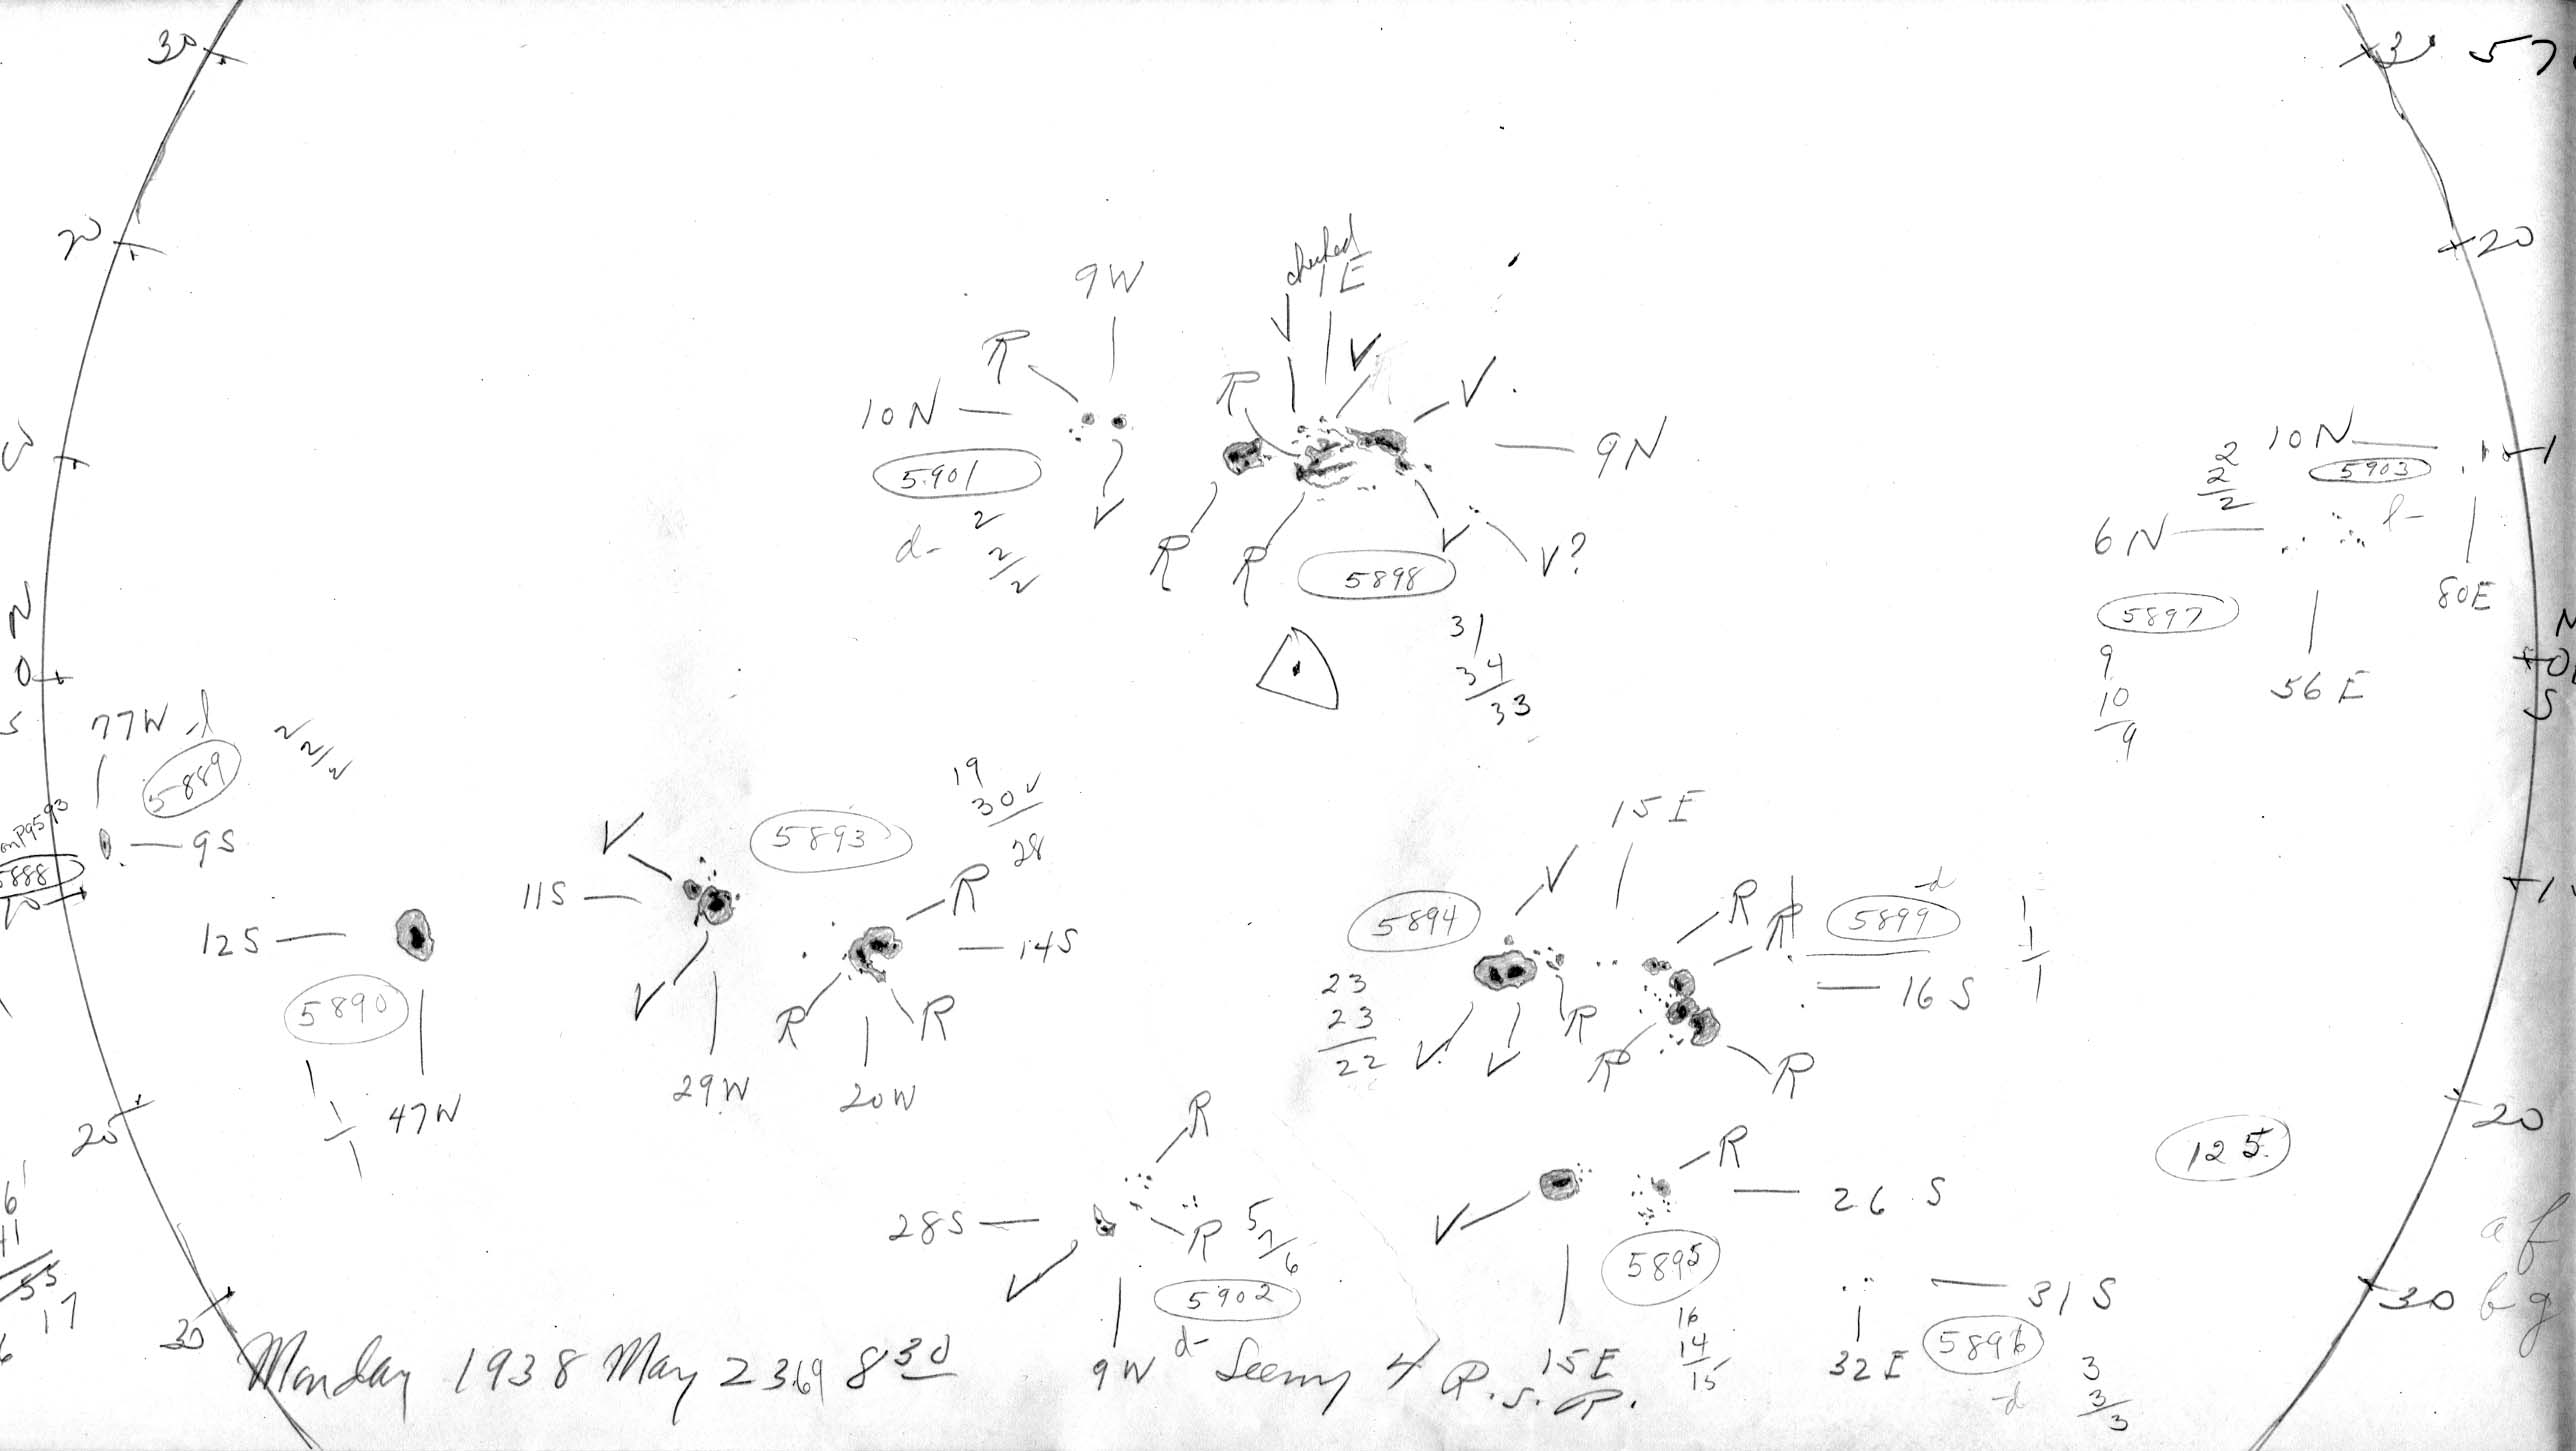 30
30
57
20
20
checked
9W
1E
V
V
R
R
V
10N
9N
5901
d-
2
2
2
V
R
R
V
V?
5898
31
34
33
10N
5903
2
2
2
6N
l-
80E
5897
9
10
9
56E
1
N
0
S
N
0
S
77W
5889
2
2
2
9S
5888
10
12S
5890
1
1
1
47W
V
5893
19
30
28
11S
R
14S
V
R
R
29W
20W
15E
V
5894
R
R
5899
-d
1
1
1
16S
23
23
22
V
V
R
R
R
1
20
20
125
R
28S
R
5
7
6
V
5902
d-
9W
R
V
26 S
5895
16
14
15
15E
31 S
5896
-d
32E
3
3
3
a f
b g
30
30
6
41
55
17
Monday 1938 May 23.69 8 30
Seeing 4 R.S.R.